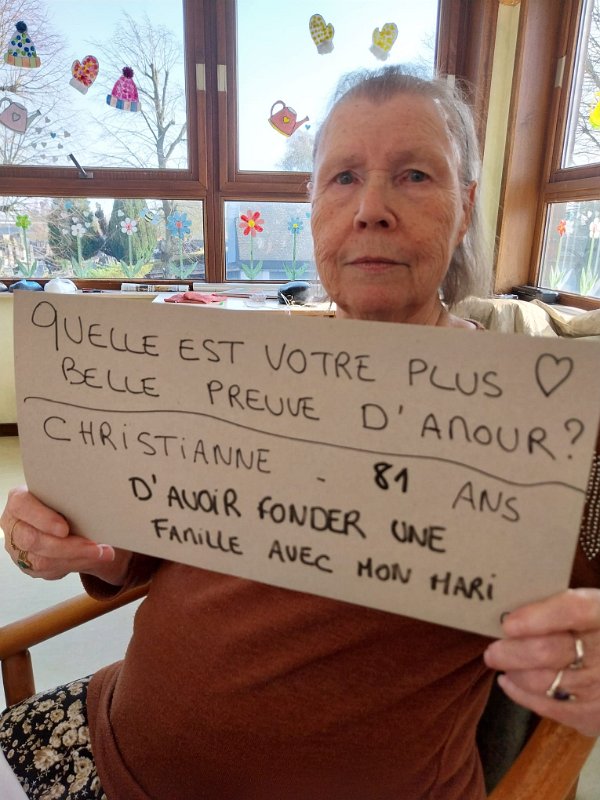 QUELLE EST VOTRE PLUS ♡
BELLE PREUVE D'AMOUR?
CHRiSTiANNE - 81 ANS
D'AVOiR FONDER UNE
FAMiLLE AVEC MON MARi